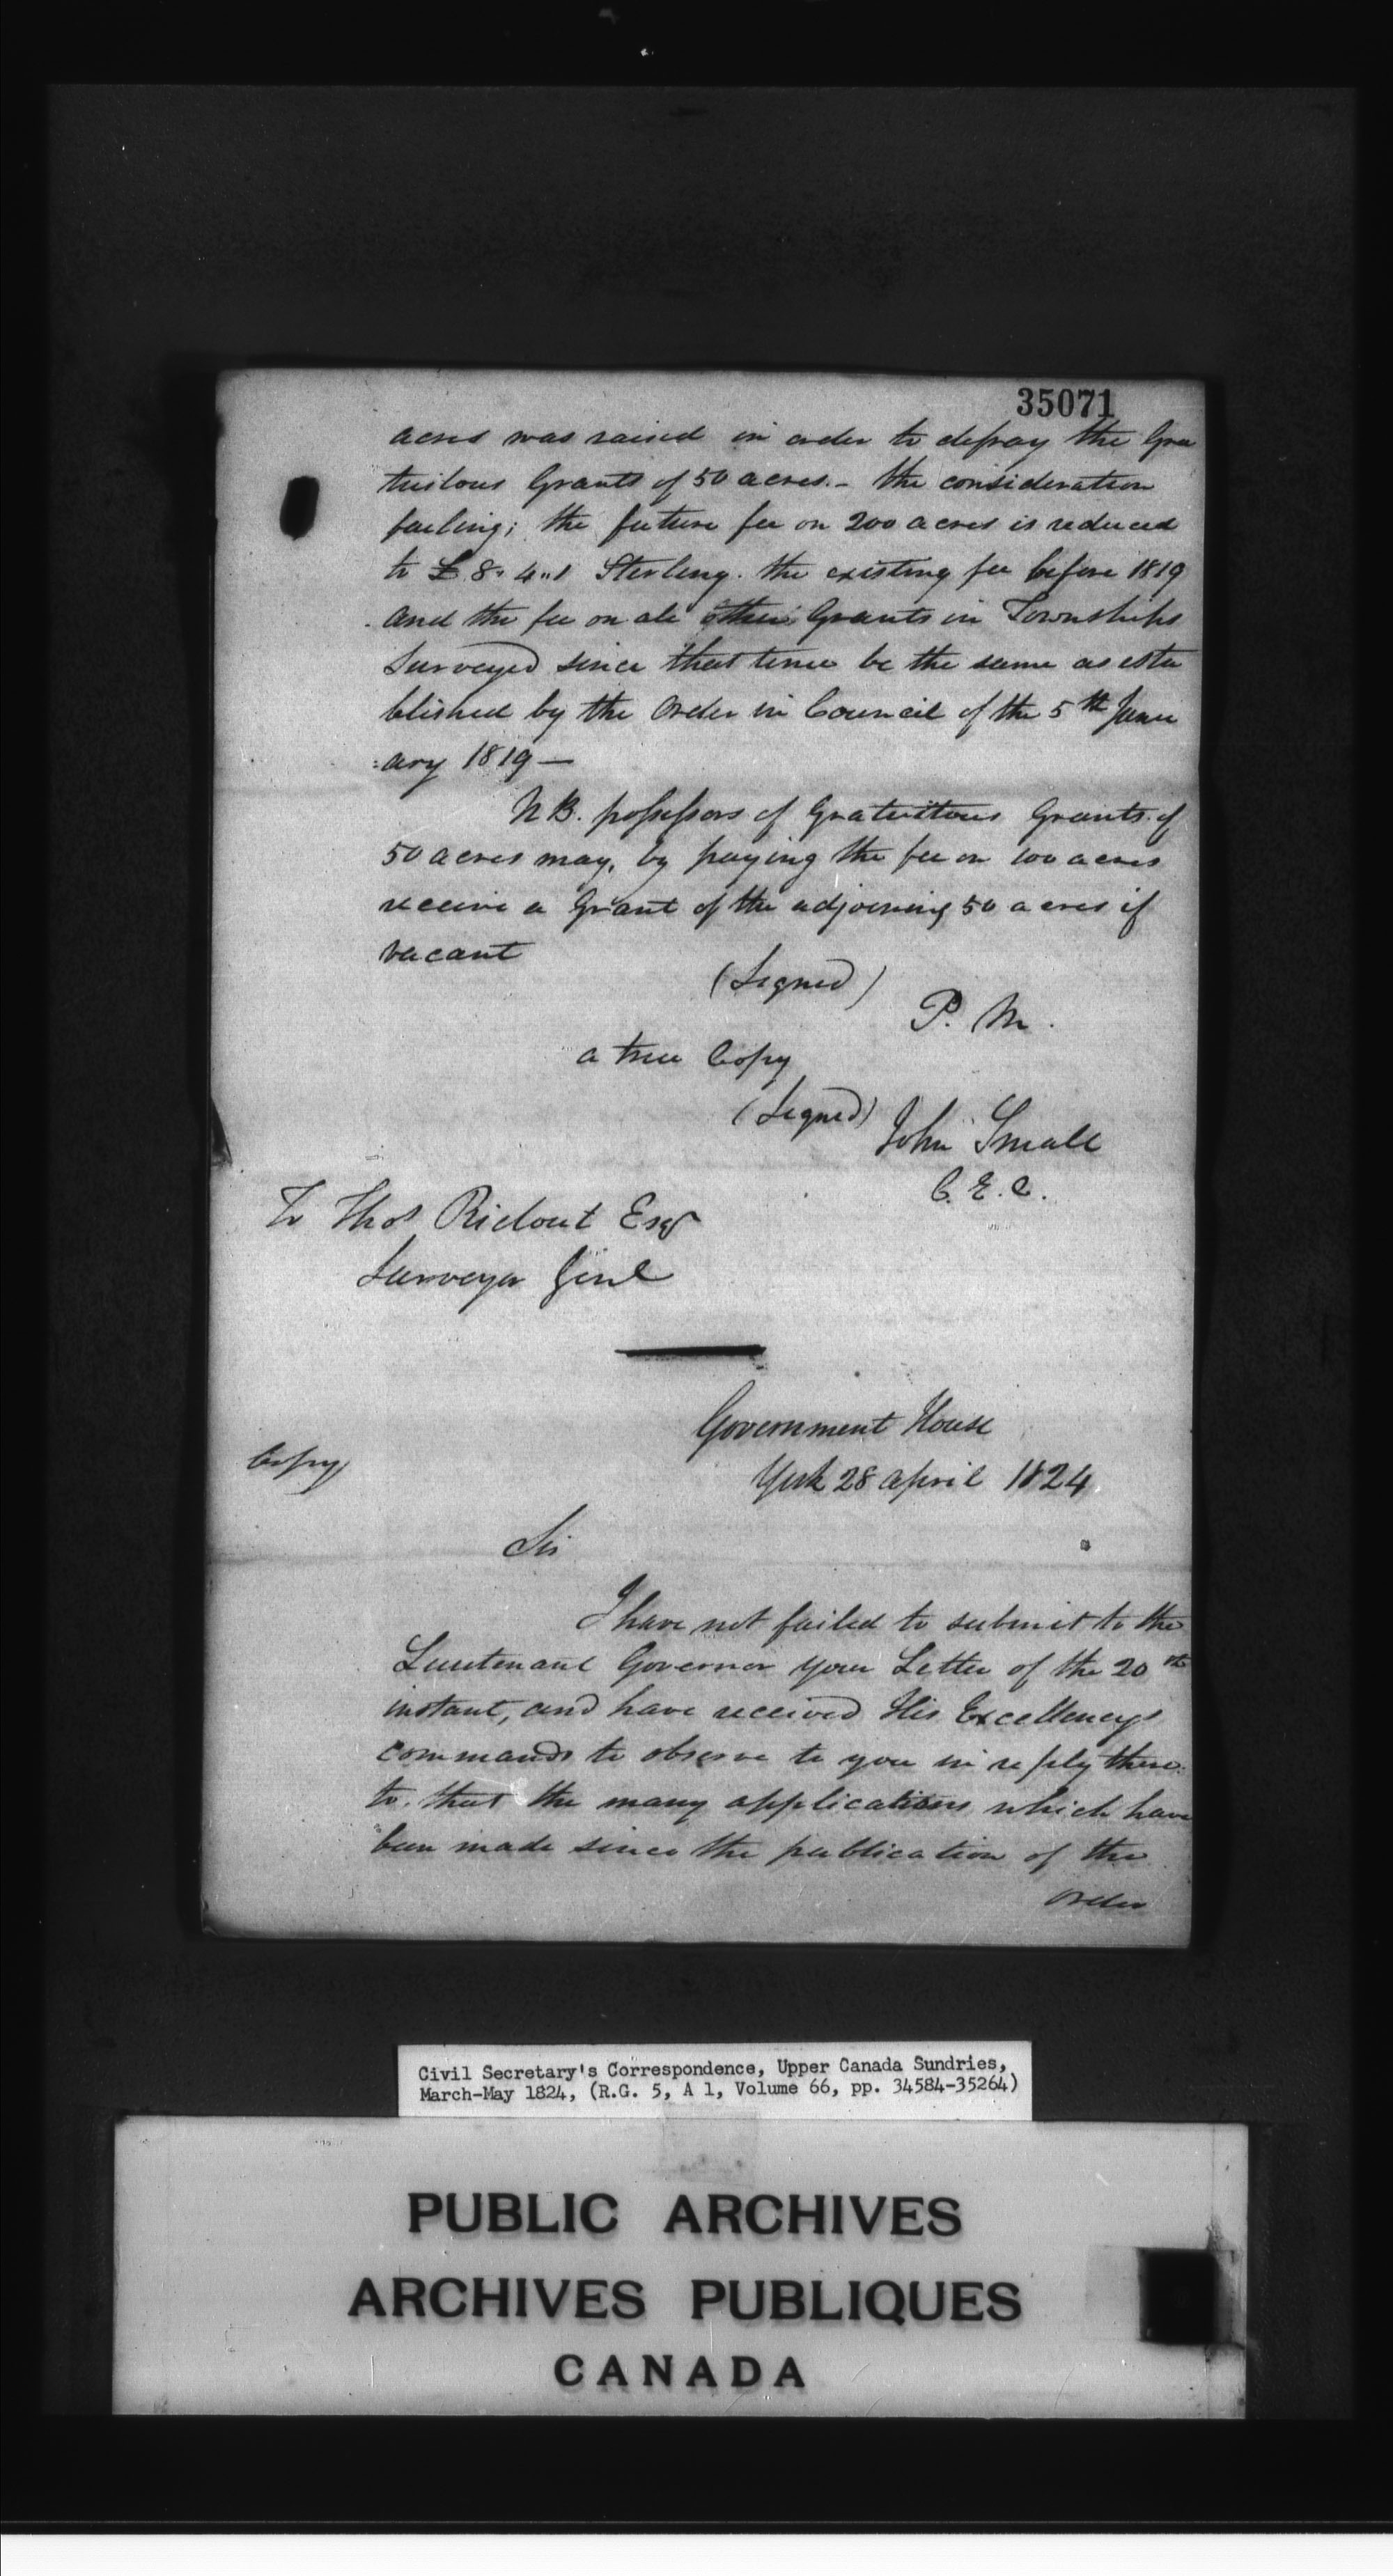 35071
acres was raised in order to defray the Gra
tuitous Grants of 50 acres. - the consideration
failing; the future fee on 200 acres is reduced
to £ 8. 4. 1 Sterling. the existing fee before 1819
and the fee on all other Grants in Townships
Surveyed since that time be the same as esta
blished by the Order in Council of the 5th Janu
:ary 1819 —
N B. possessors of Gratuitous Grants of
50 acres may, by paying the fee on 100 acres
receive a Grant of the adjoining 50 acres if
vacant
(Signed)
P. M.
a true Copy
(Signed) John Small
C. E. C.
To Thos Ridout Esqr
Surveyor Genl
Government House
Copy
York 28 april 1824
Sir
I have not failed to submit to the
Lieutenant Governor your Letter of the 20th
instant, and have received His Excellencys
commands to observe to you in reply there
to. that the many applications which have
been made since the publication of the
Order
Civil Secretary's Correspondence, Upper Canada Sundries,
March-May 1824, (R.G. 5, A 1, Volume 66, pp. 34584-35264)
PUBLIC ARCHIVES
ARCHIVES PUBLIQUES
CANADA